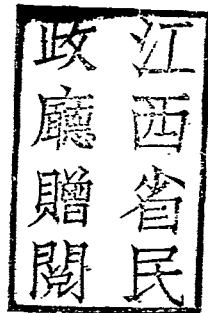 江西省民
政廳贈閱